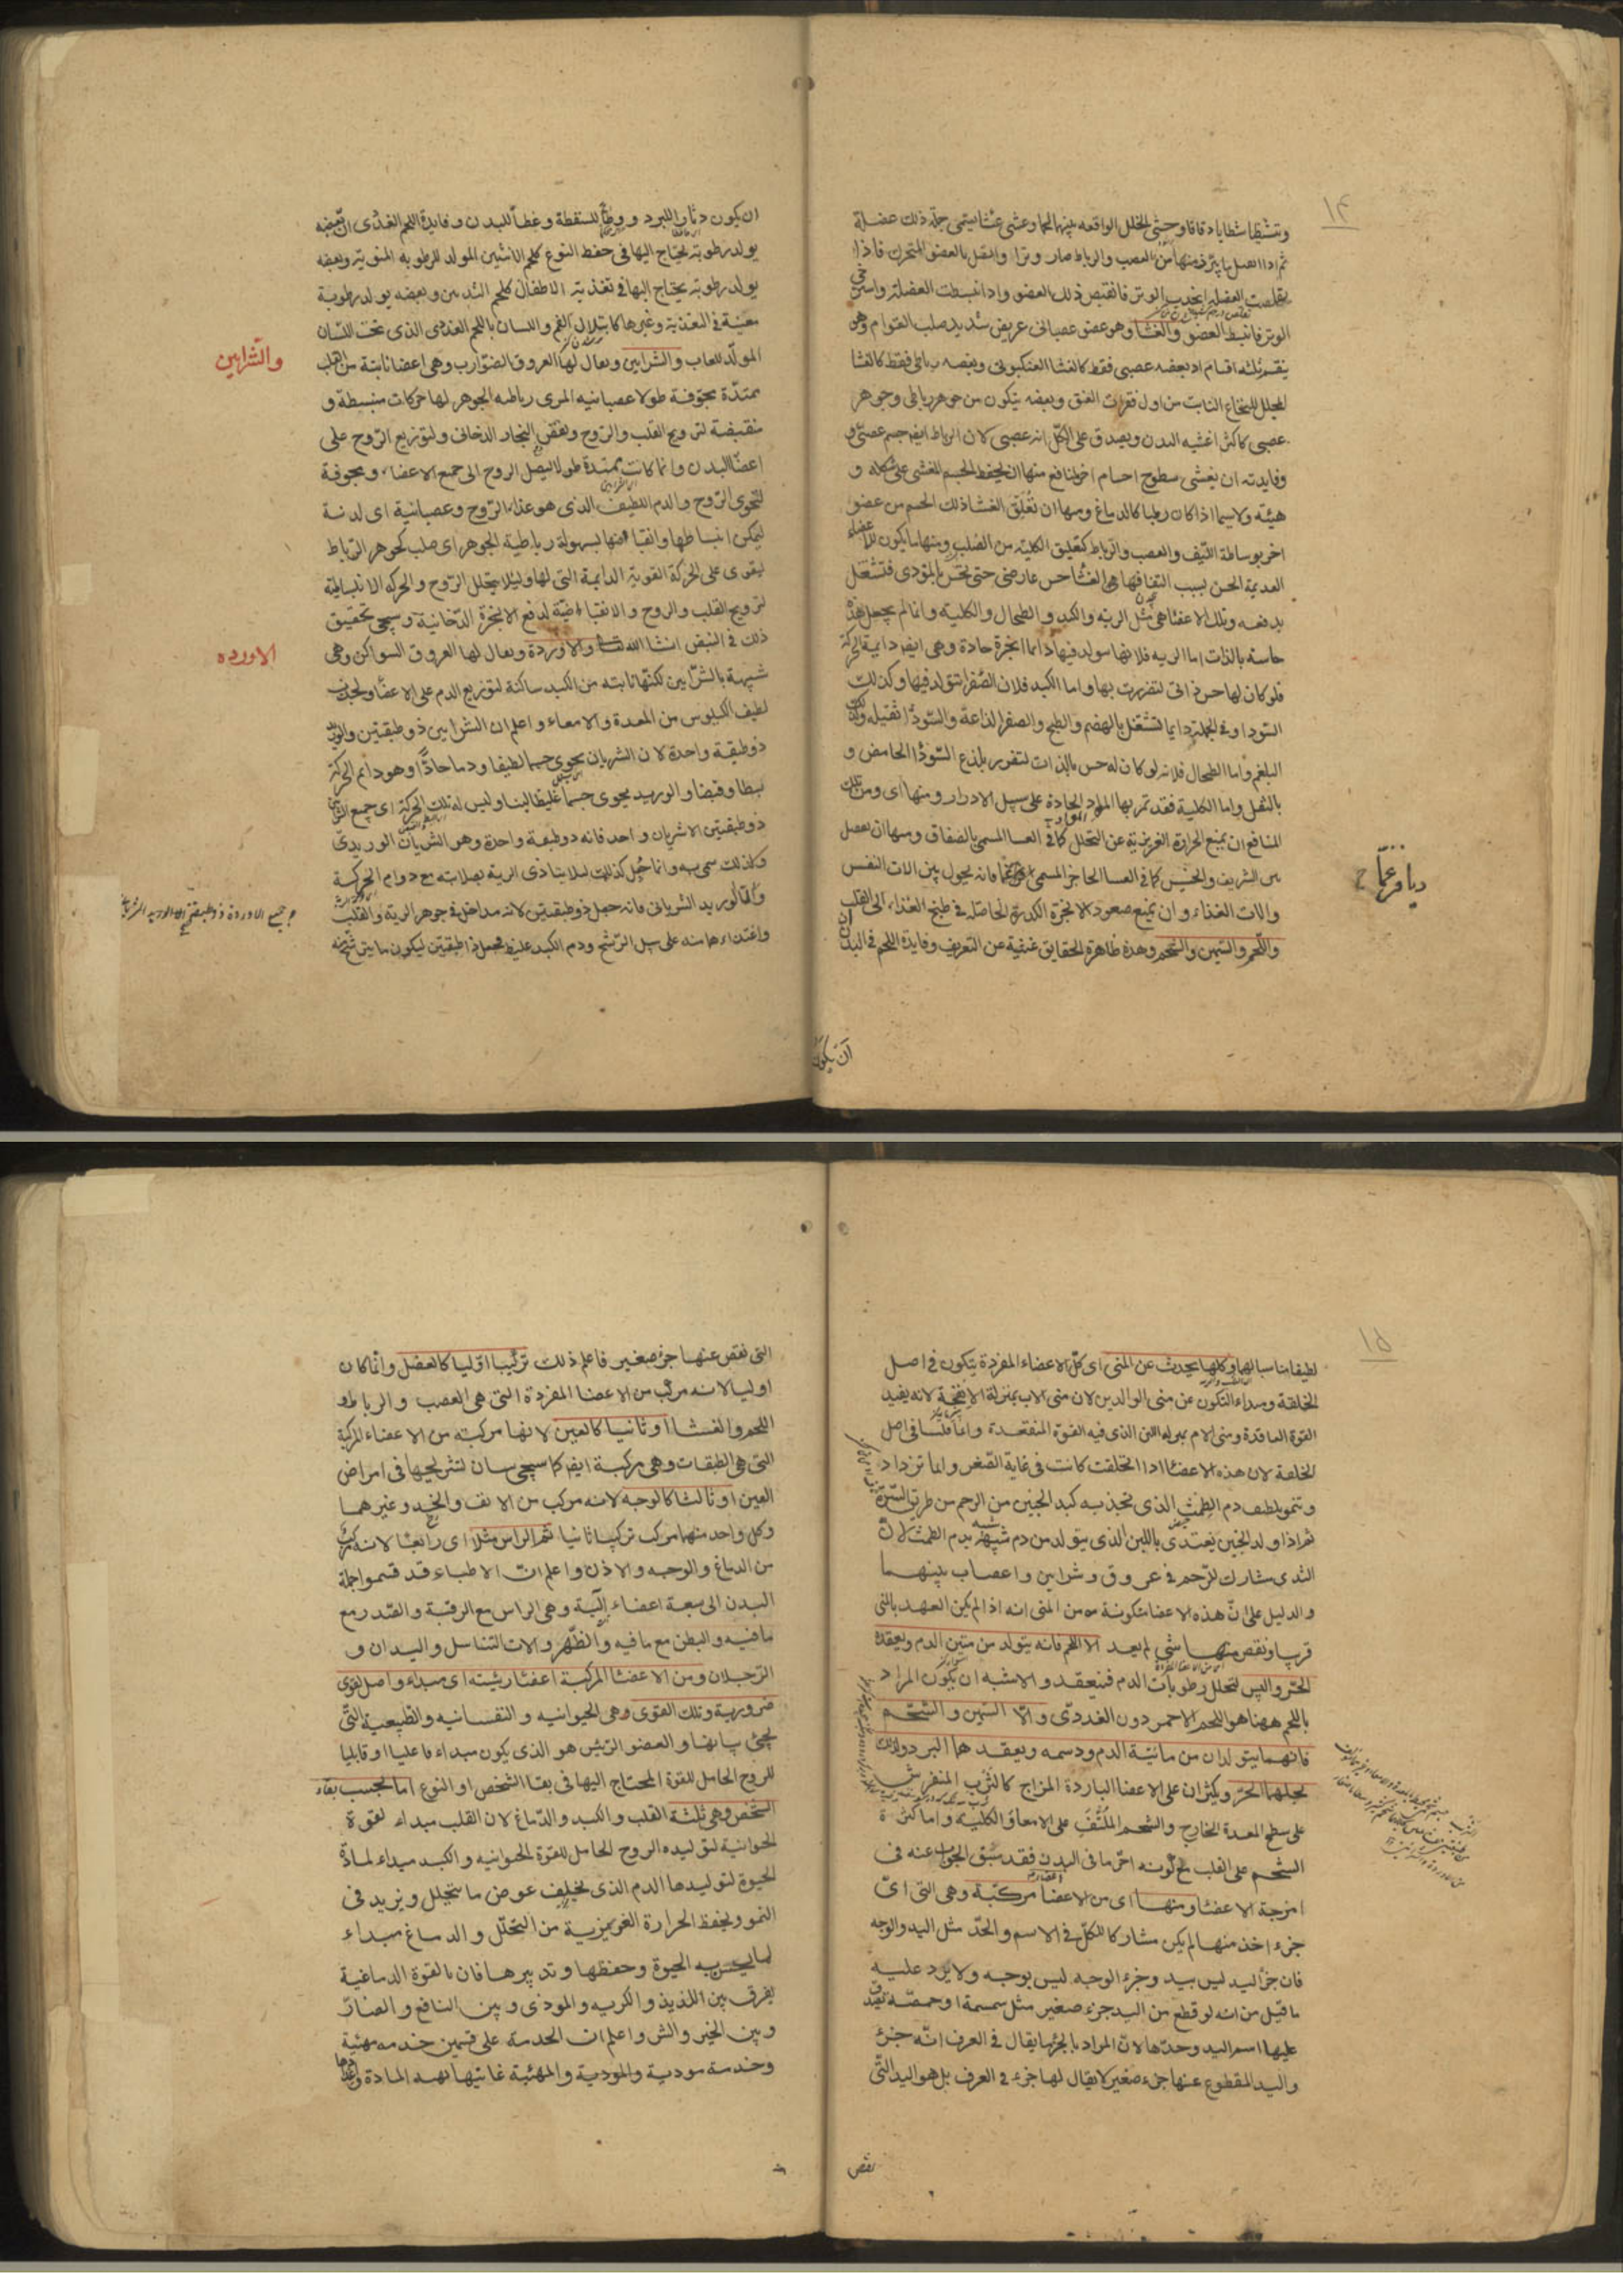 ١٤
وتتشظا شظايا دقاقا وحشى الخلل الواقعه بينهما لحما وغشى غشا يسمى جملة ذلك عضلة
ثم اذا اتصل ما يبرز منها من العصب والرباط صار وترا واتصل بالعضو المتحرك فاذا
تقلصت العضلة انجذب الوتر فانقبض ذلك العضو واذا انبسطت العضلة واسترخى
الوتر فانبسط العضو والغشا وهو عضو عصبانى عريض شديد صلب القوام وهو
ينقسم ثلثه اقسام اذ بعضه عصبى فقط كالغشا العنكبوتى وبعضه رباطى فقط كالغشا
المجلل للنخاع النابت من اول فقرات العنق وبعضه يتكون من جوهر رباطى وجوهر
عصبى كاكثر اغشيه البدن ويصدق على الكل انه عصبى لان الرباط ايضا جسم عصبى و
وفايدته ان يغشى سطوح اجسام اخر لمنافع منها ان يحفظ الجسم المغشى على شكله و
هيئته ولاسيما اذا كان رطبا كالدماغ ومنها ان تعلق الغشا ذلك الجسم من عضو
اخر بوساطة الليف والعصب والرباط كتعليق الكلية من الصلب ومنها ما يكون للاعضاء
العديمة الحس بسبب التفافها فى الغشا حس عارضى حتى تحس بالموذى فتشتغل
بدفعه وتلك الاعضا هى مثل الريه والكبد والطحال والكليه وانما لم يجعل هذه
حاسة بالذات اما الريه فلانها يتولد فيها دايما ابخرة حادة وهى ايضا دايمة الحركة
فلو كان لها حس ذاتى لتضررت بها واما الكبد فلان الصفرا تتولد فيها وكذلك
السودا وفى الجملة دايما تشتغل بالهضم والطبخ والصفرا لذاعة والسودا ثقيله وكذلك
البلغم واما الطحال فلانه لو كان له حس بالذات لتضرر بلذع السودا الحامض و
بالثقل واما الكلية فقد تمر بها المواد الحادة على سبيل الادرار ومنها اى ومن تلك
المنافع ان يمنع الحرارة الغريزية عن التحلل كما فى الغشا المسمى بالصفاق ومنها ان يفصل
بين الشريف والخسيس كما فى الغشا الحاجز المسمى فانه يحول بين الات النفس
والات الغذاء وان يمنع صعود الابخرة الكدرة الحاصله فى طبخ الغذاء الى القلب
واللحم والسمين والشحم وهذه ظاهرة الحقايق غنية عن التعريف وفايدة اللحم فى البدن
ديافرغما
ان يكون
ان يكون دثارا للبرد ووطأ للسقطة وغطأ للبدن وفايدة اللحم الغددى ان بعضه
يولد رطوبة يحتاج اليها فى حفظ النوع كلحم الانثيين المولد للرطوبة المنوية وبعضه
يولد رطوبة يحتاج اليها فى تغذية الاطفال كلحم الثديين وبعضه يولد رطوبة
معينة فى التغذية وغيرها كابتلال الفم واللسان باللحم الغددى الذى تحت اللسان
المولد للعاب والشرايين ويقال لها العروق الضوارب وهى اعضا نابتة من القلب
ممتدة مجوفة طولا عصبانيه المرى رباطيه الجوهر لها حركات منبسطة و
منقبضة لترويح القلب والروح ونفض البخار الدخانى ولتوزيع الروح على
اعضا البدن وانما كانت ممتدة طولا ليصل الروح الى جميع الاعضاء ومجوفة
لتحوى الروح والدم اللطيف الذى هو غذاء الروح وعصبانية اى لدنة
ليمكن انبساطها وانقباضها بسهولة رباطية الجوهر اى صلب كجوهر الرباط
ليقوى على الحركة القوية الدايمة التى لها وليلا يتحلل الروح والحركه الانبساطية
لترويح القلب والروح والانقباضية لدفع الابخرة الدخانية وسيجى تحقيق
ذلك فى النبض انشا الله تعالى والاوردة ويقال لها العروق السواكن وهى
شبيهة بالشرايين لكنها نابته من الكبد ساكنة لتوزيع الدم على الاعضا ولجذب
لطيف الكيلوس من المعدة والامعاء واعلم ان الشرايين ذو طبقتين والوريد
ذو طبقية واحدة لان الشريان يحوى جسما لطيفا ودما حادا وهو دايم الحركة
بسطا وقبضا والوريد يحوى جسما غليظا لينا وليس له تلك الحركة اى جميع الشرايين
ذو طبقتين الا شريان واحد فانه ذو طبقة واحدة وهو الشريان الوريدى
وكذلك سمى به وانما جعل كذلك ليلا يتاذى الرية بصلابته مع دوام الحركة
والا الوريد الشريانى فانه جعل ذو طبقتين لانه مداخل فى جوهر الرية والقلب
واغتذاءهما منه على سبيل الرشح ودم الكبد غليظ فجعل ذا طبقتين ليكون ما يترشحه
والشرايين
الاورده
١٥
لطيفا مناسبا لهما وكلها يحدث عن المنى اى كل الاعضاء المفردة يتكون فى اصل
الخلقة ومبداء التكون عن منى الوالدين لان منى الاب بمنزلة الانفحة لانه يفيد
القوة العاقدة ومنى الام بمنزله اللبن الذى فيه القوة المنعقدة وانما قلنا فى اصل
الخلقة لان هذه الاعضا اذا انخلقت كانت فى غاية الصغر وانما تزداد
وتنمو بلطف دم الطمث الذى تجذبه كبد الجنين من الرحم من طريق السرة
ثم اذا ولد الجنين يغتذى باللبن الذى يتولد من دم شبيه بدم الطمث لان
الثدى مشارك للرحم فى عروق وشرايين واعصاب بينهما
والدليل على ان هذه الاعضا متكونة من المنى انه اذا لم يكن العهد بالمنى
قريبا ونقص منها شى لم يعد الا اللحم فانه يتولد من متين الدم ويعقده
الحر واليبس لتحلل رطوبات الدم فينعقد والاشبه ان يكون المراد
باللحم ههنا هو اللحم الاحمر دون الغددى والا السمين والشحم
فانهما يتولدان من مائية الدم ودسمه ويعقدهما البرد ولذلك
يحلهما الحر ويكثران على الاعضا الباردة المزاج كالثرب المنفرش
على سطح المعدة الخارج والشحم الملتف على الامعا والكلية واما كثرة
الشحم على القلب مع كونه احر ما فى البدن فقد سبق الجواب عنه فى
امزجة الاعضا ومنها اى من الاعضا مركبة وهى التى اى
جزء اخذ منها لم يكن مشاركا للكل فى الاسم والحد مثل اليد والوجه
فان جزأ اليد ليس بيد وجزء الوجه ليس بوجه ولا يرد عليه
ما قيل من انه لو قطع من اليد جزء صغير مثل سمسمة او حمصة يصدق
عليها اسم اليد وحدها لان المراد بالجزء ما يقال فى العرف انه جزء
واليد المقطوع عنها جزء صغير لا يقال لها جزء فى العرف بل هو اليد التى
نقص
التى نقص عنها جزء صغير فاعلم ذلك تركيبا اوليا كالعضل وانما كان
اوليا لانه مركب من الاعضا المفردة التى هى العصب والرباط و
اللحم والغشا او ثانيا كالعين لانها مركبة من الاعضاء المركبة
التى هى الطبقات وهى مركبة ايضا كما سيجى بيان تشريحها فى امراض
العين او ثالثا كالوجه لانه مركب من الانف والخد وغيرهما
وكل واحد منها مركب تركيبا ثانيا ثم الراس مثلا اى رابعا لانه مركب
من الدماغ والوجه والاذن واعلم ان الاطباء قد قسموا جملة
البدن الى سبعة اعضاء آلية وهى الراس مع الرقبة والصدر مع
ما فيه والبطن مع ما فيه والظهر والات التناسل واليدان و
الرجلان ومن الاعضا المركبة اعضا رئيسة اى مبداء واصل لقوى
ضرورية وتلك القوى وهى الحيوانيه والنفسانيه والطبيعية التى
يجئ بيانها والعضو الرئيس هو الذى يكون مبداء فاعليا او قابليا
للروح الحامل للقوة المحتاج اليها فى بقا الشخص او النوع اما بحسب بقاء
الشخص وهى ثلثة القلب والكبد والدماغ لان القلب مبداء لقوة
الحيوانية لتوليده الروح الحامل للقوة الحيوانيه والكبد مبداء لمادة
الحيوة لتوليدها الدم الذى يخلف عوض ما يتحلل ويزيد فى
النمو ويحفظ الحرارة الغريزية من التحلل والدماغ مبداء
لما يحس به الحيوة وحفظها وتدبيرها فان بالقوة الدماغية
يفرق بين اللذيذ والكريه والموذى وبين النافع والضار
وبين الخير والشر واعلم ان الخدمة على قسمين خدمه مهيئة
وخدمة مودية والمودية والمهئية غايتها تهيه المادة